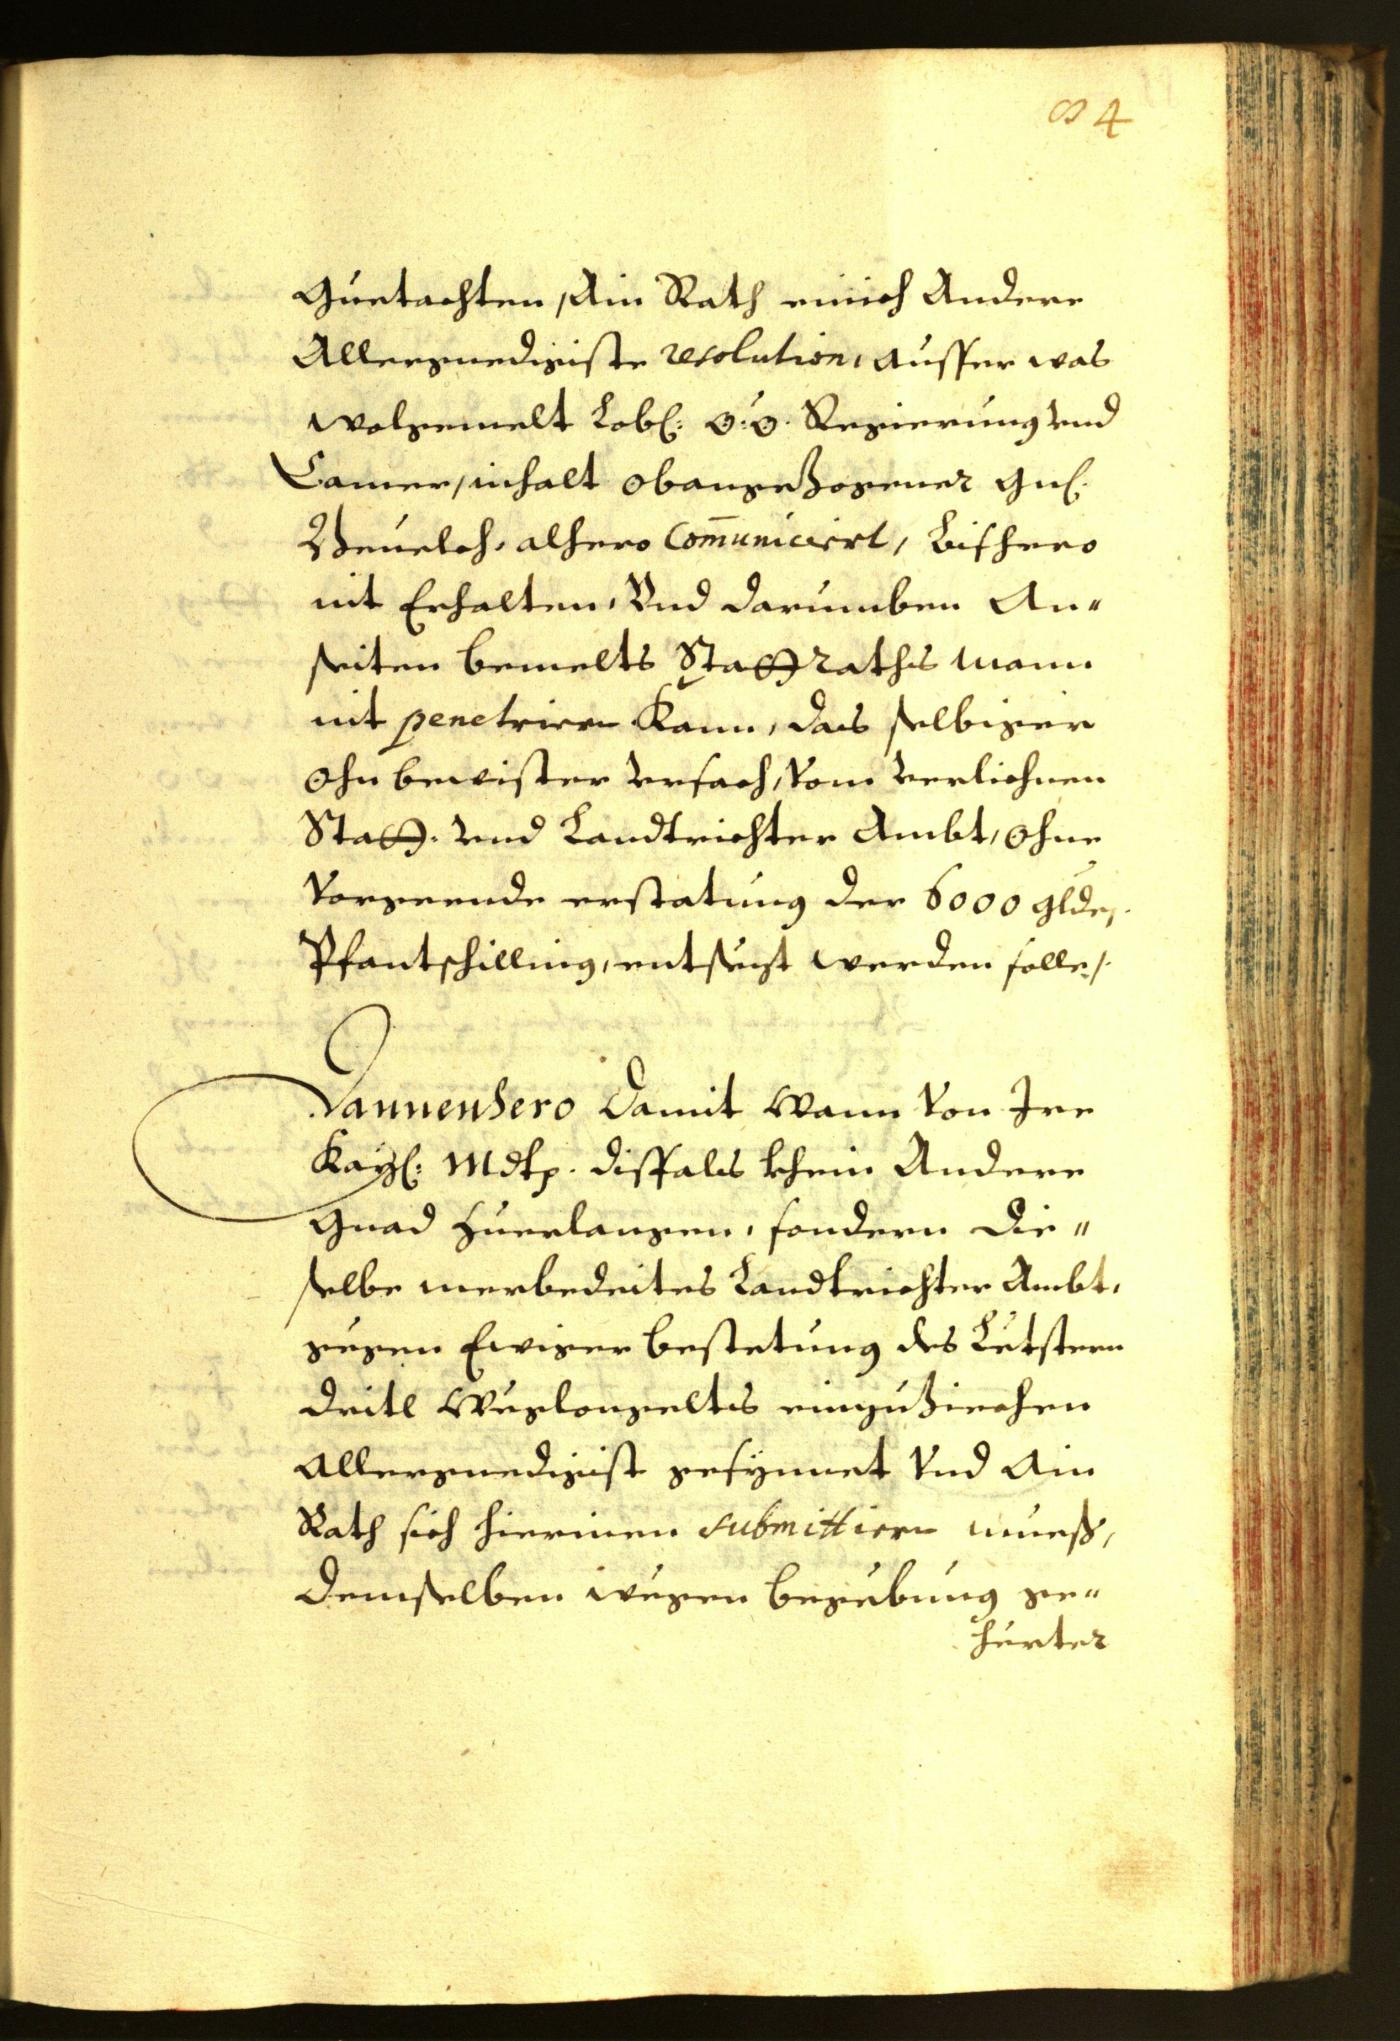 84
Guetachten, Ain Rath einich Andere
Allergnedigiste resolution, ausser was
wolgemelt Lobl: O: Ö. Regierung vnd
Camer, inhalt obangeZogener Gnl.
Beuelch, alhero Com̅uniciert, bishero
nit Erhalten, Vnd darumben An-
seiten bemelts Stattraths mann
nit penetriren Kann, das selbiger
ohn bewister vrsach, vom verlichnen
Statt- vnd Landtrichter Ambt, ohne
vorgeende erstatung der 6000 glde.
Pfantschilling, entsezt werden solle.
Dannenhero damit wann von Ire
Kayl: Mdtp. dissfals khein Andere
Gnad zuerlangen, sondern die-
selbe merbedeites Landtrichter Ambt,
gegen Ewiger bestetung des Letstern
dritl Weglonzeltes einzuZiechen
Allergnedigist gesÿnnet vnd Ain
Rath sich hierinen submittiern muess,
demselben wegen begebung ge-
herter